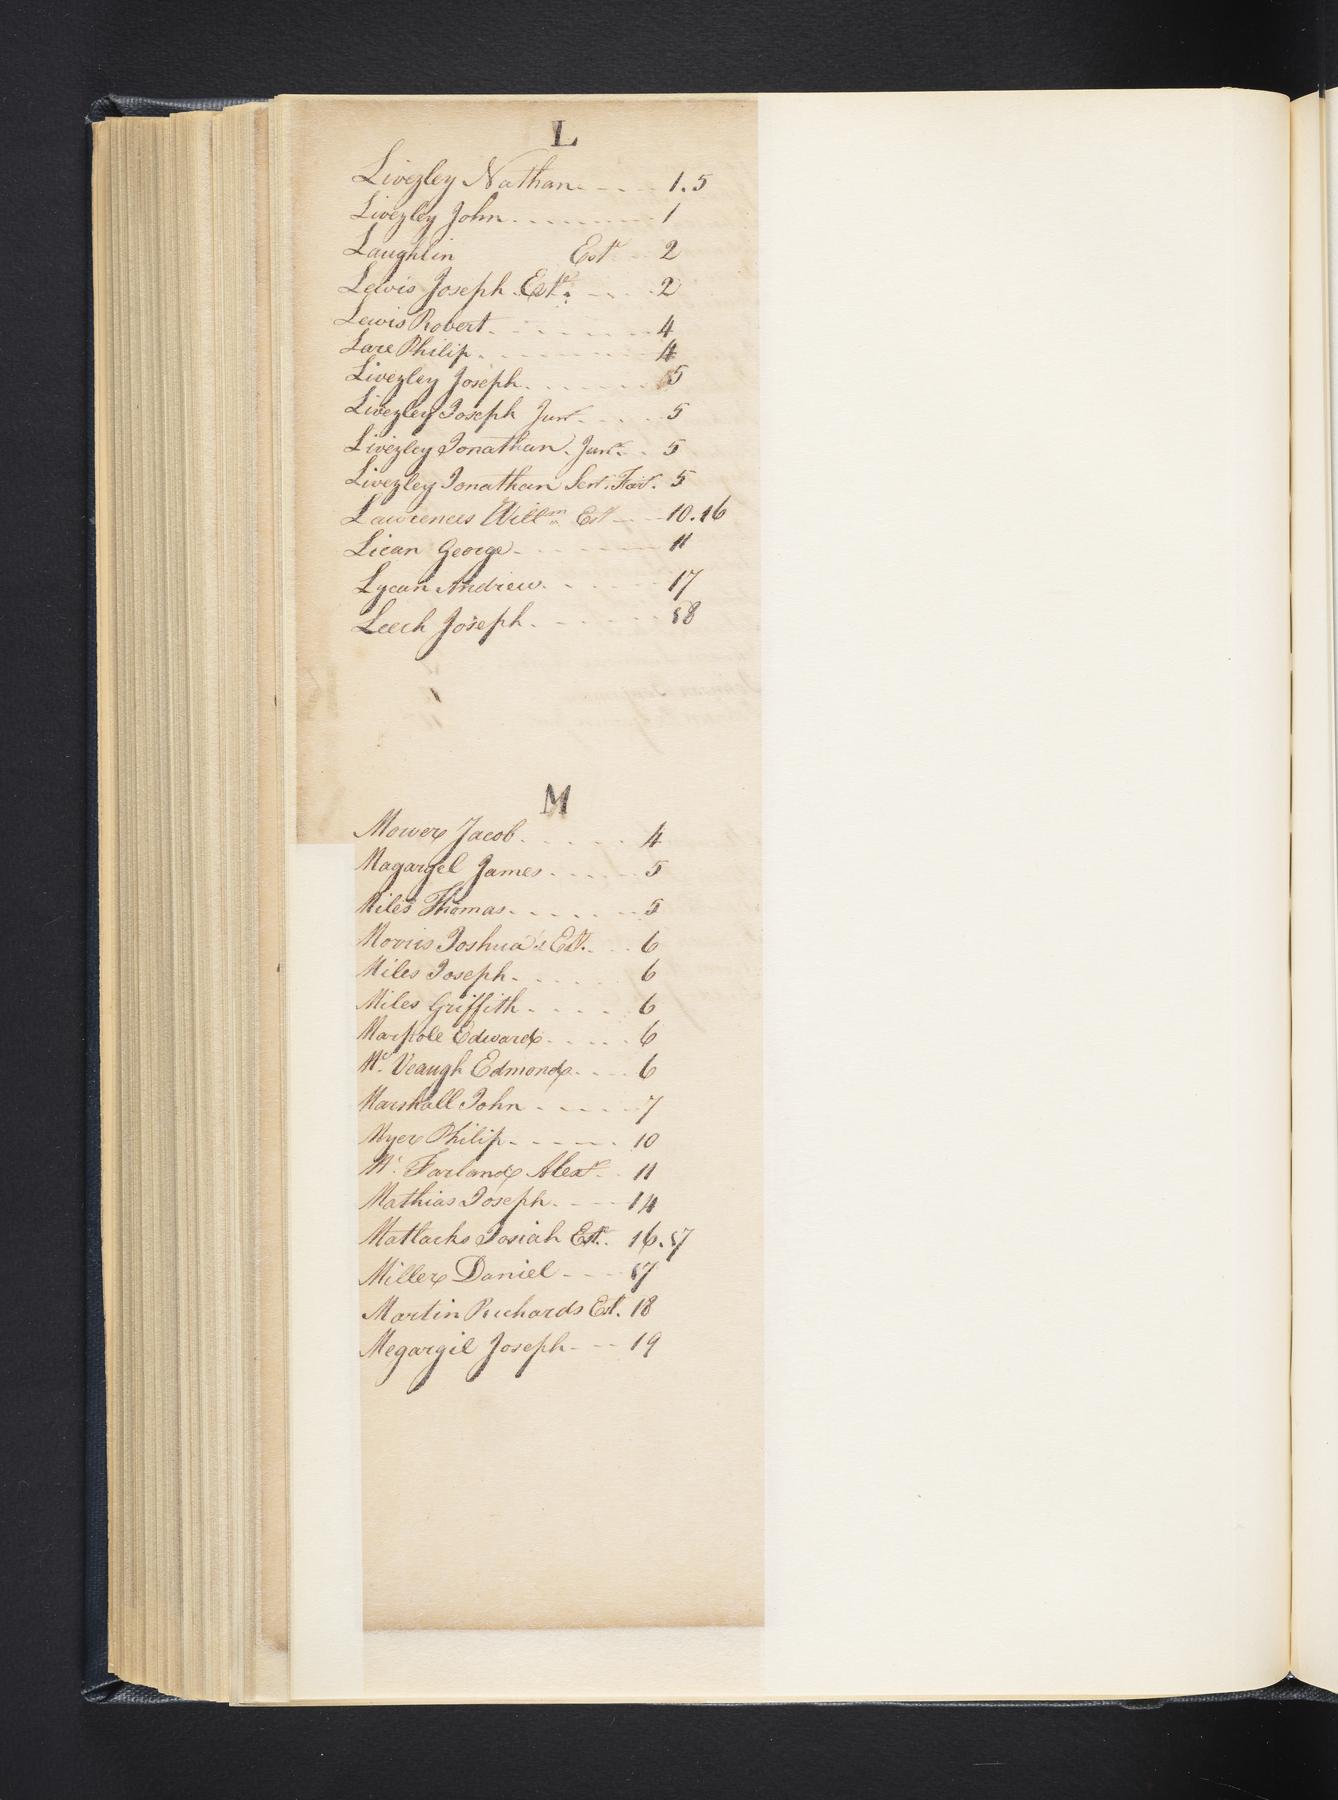 L
Livezley Nathan. - - - 1.5
Livezley John. - - - - - - - 1
Laughlin Estr - - 2
Lewis Joseph Estr. - - - 2
Lewis Robert. - - - - - - - 4
Lare Philip. - - - - - - - - 4
Livezley Joseph. - - - - - 5
Livezley Joseph Junr. - - - 5
Livezley Jonathan. Junr. - 5
Livezley Jonathan Senr. 5
Lawrences Willm Est - - 10.16
Lican George - - - - - - 11
Lycan Andrew. - - - - - 17
Leech Joseph. - - - - - - 18
M
Mower Jacob. - - - - - 4
Magargel James. - - - - 5
Miles Thomas. - - - - - 5
Morris Joshua's Est. - - 6
Miles Joseph. - - - - - 6
Miles Griffith. - - - - 6
Marpole Edward. - - - - 6
Mc. Veaugh Edmond. - - - 6
Marshall John - - - - - 7
Myer Philip. - - - - - . 10
Mc. Farland Alexr. - 11
Mathias Joseph. - - - 14
Matlacks Josiah Est. 16.17
Miller Daniel - - - - 17
Martin Richards Est. 18
Megargil Joseph - - - 19